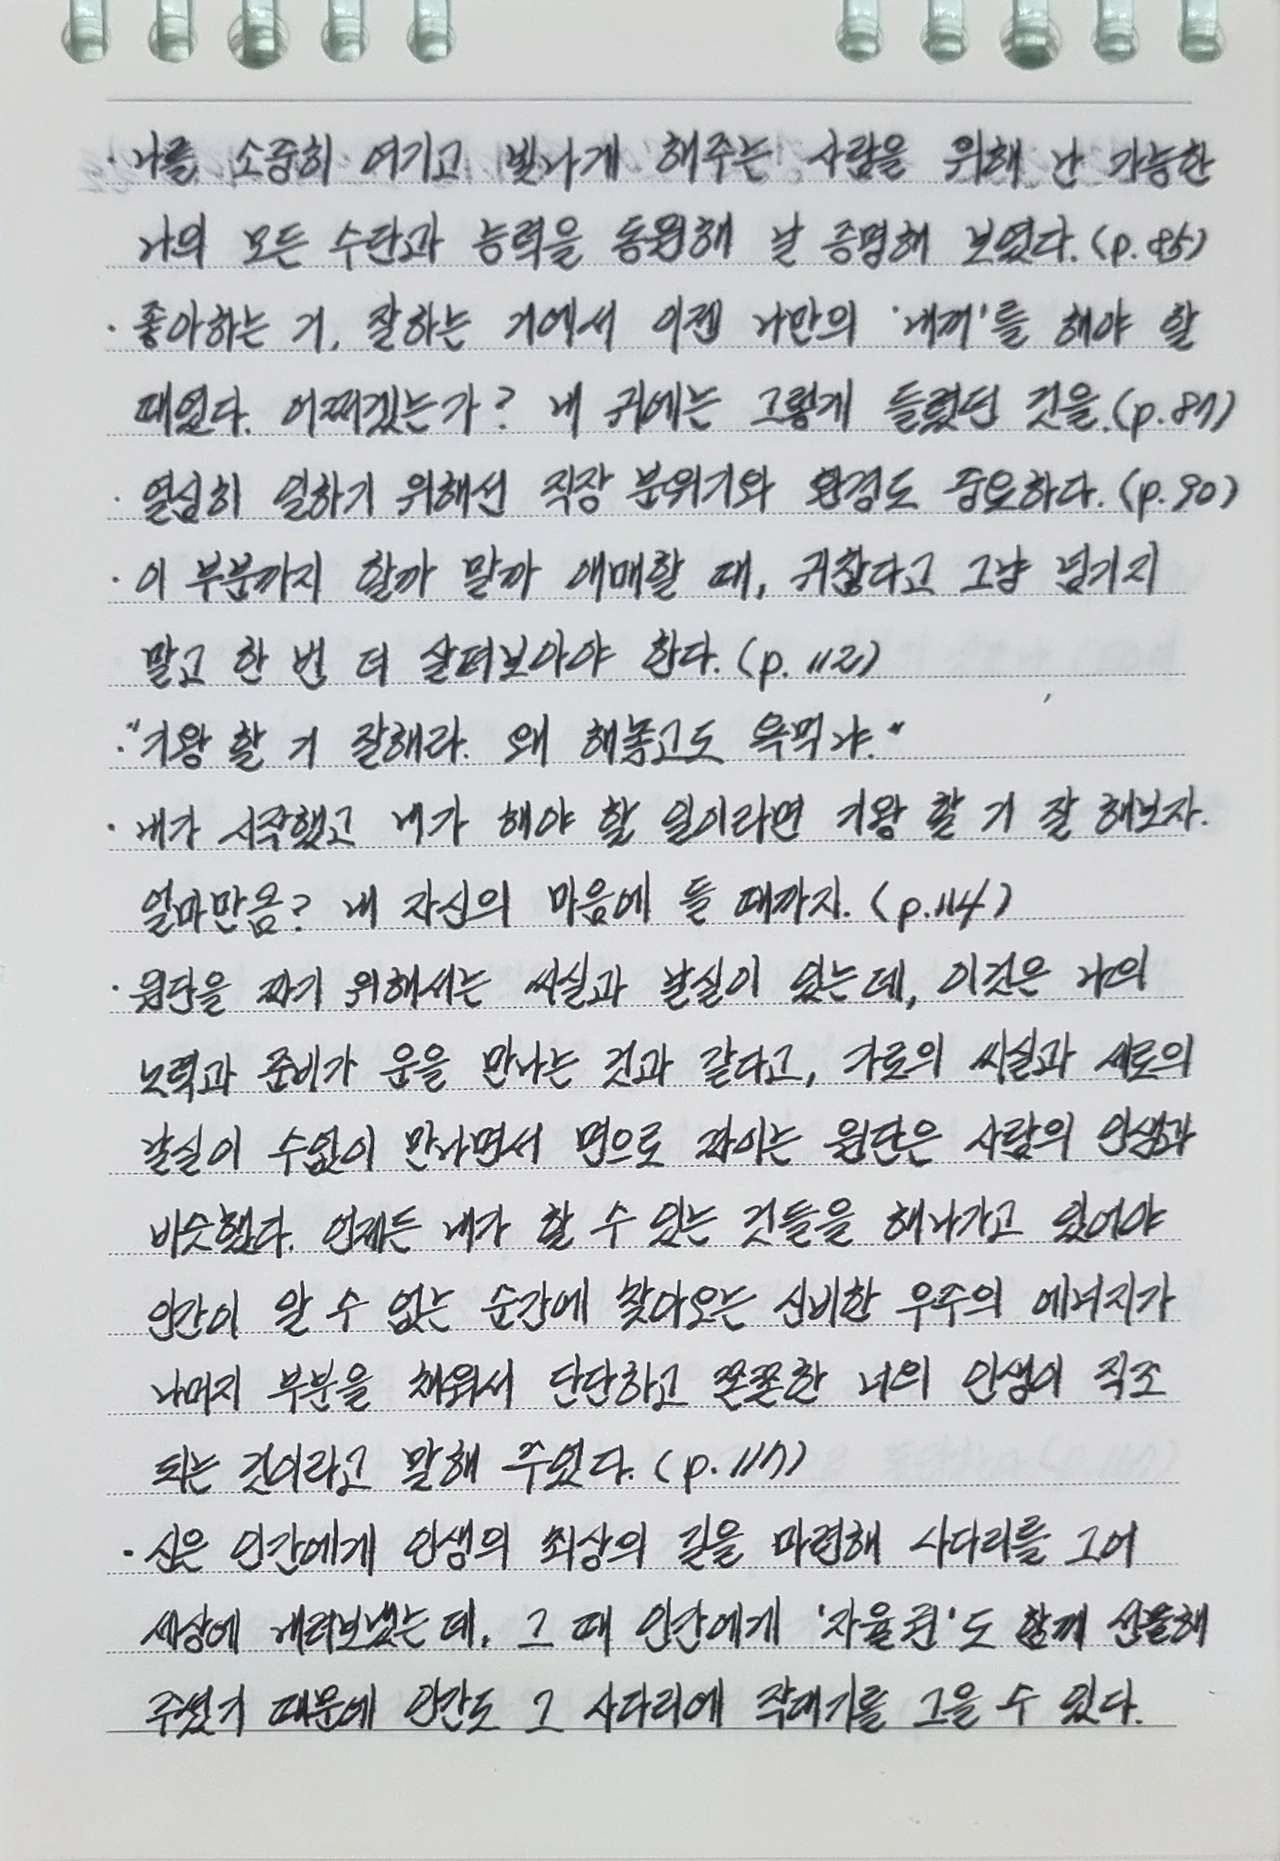 · 나를 소중히 여기고 빛나게 해주는 사람을 위해 난 가능한
나의 모든 수단과 능력을 동원해 날 증명해 보였다. (p.85)
· 좋아하는 거, 잘하는 거에서 이젠 나만의 '새끼'를 해야 할
때였다. 어쩌겠는가? 내 귀에는 그렇게 들렸던 것을.(p.87)
· 열심히 일하기 위해선 직장 분위기와 환경도 중요하다. (p.90)
· 이 부분까지 할까 말까 애매할 때, 귀찮다고 그냥 넘기지
말고 한 번 더 살펴보아야 한다. (p.112)
· "기왕 할 거 잘해라. 왜 해놓고도 욕먹냐."
· 내가 시작했고 내가 해야 할 일이라면 기왕 할 거 잘 해보자.
얼마만큼? 내 자신의 마음에 들 때까지. (p.114)
· 원단을 짜기 위해서는 씨실과 날실이 있는데, 이것은 나의
노력과 준비가 운을 만나는 것과 같다고, 가로의 씨실과 세로의
날실이 수없이 만나면서 면으로 짜이는 원단은 사람의 인생과
비슷했다. 언제든 내가 할 수 있는 것들을 해나가고 있어야
인간이 알 수 없는 순간에 찾아오는 신비한 우주의 에너지가
나머지 부분을 채워서 단단하고 쫀쫀한 너의 인생이 직조
되는 것이라고 말해 주었다. (p.117)
· 신은 인간에게 인생의 최상의 길을 마련해 사다리를 그어
세상에 내려보냈는데, 그 때 인간에게 '자율권'도 함께 선물해
주셨기 때문에 인간도 그 사다리에 작대기를 그을 수 있다.